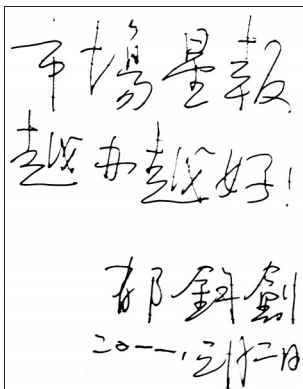 市場星報
越办越好!
郁鈞劍
二〇一一,三月十二日